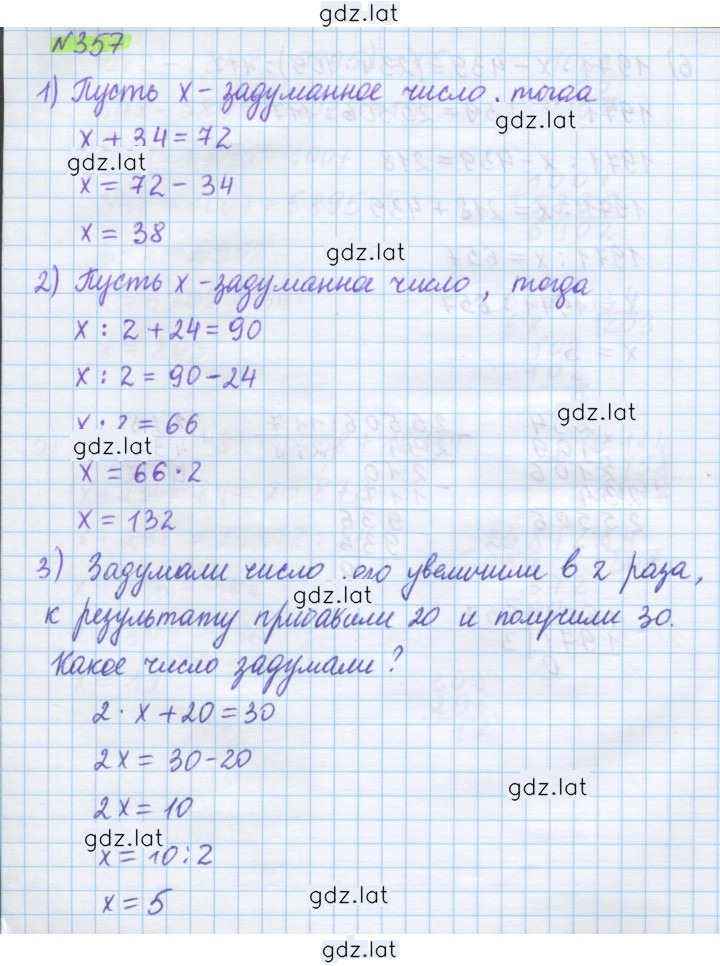 gdz.lat
№357
1) Пусть x - задуманное число, тогда
gdz.lat
x + 34 = 72
gdz.lat
x = 72 - 34
x = 38
gdz.lat
2) Пусть x - задуманное число, тогда
x : 2 + 24 = 90
x : 2 = 90 - 24
gdz.lat
x : 2 = 66
gdz.lat
x = 66 · 2
x = 132
3) Задумали число, его увеличили в 2 раза,
gdz.lat
к результату прибавили 20 и получили 30.
Какое число задумали?
2 · x + 20 = 30
2x = 30 - 20
gdz.lat
2x = 10
gdz.lat
x = 10 : 2
gdz.lat
x = 5
gdz.lat